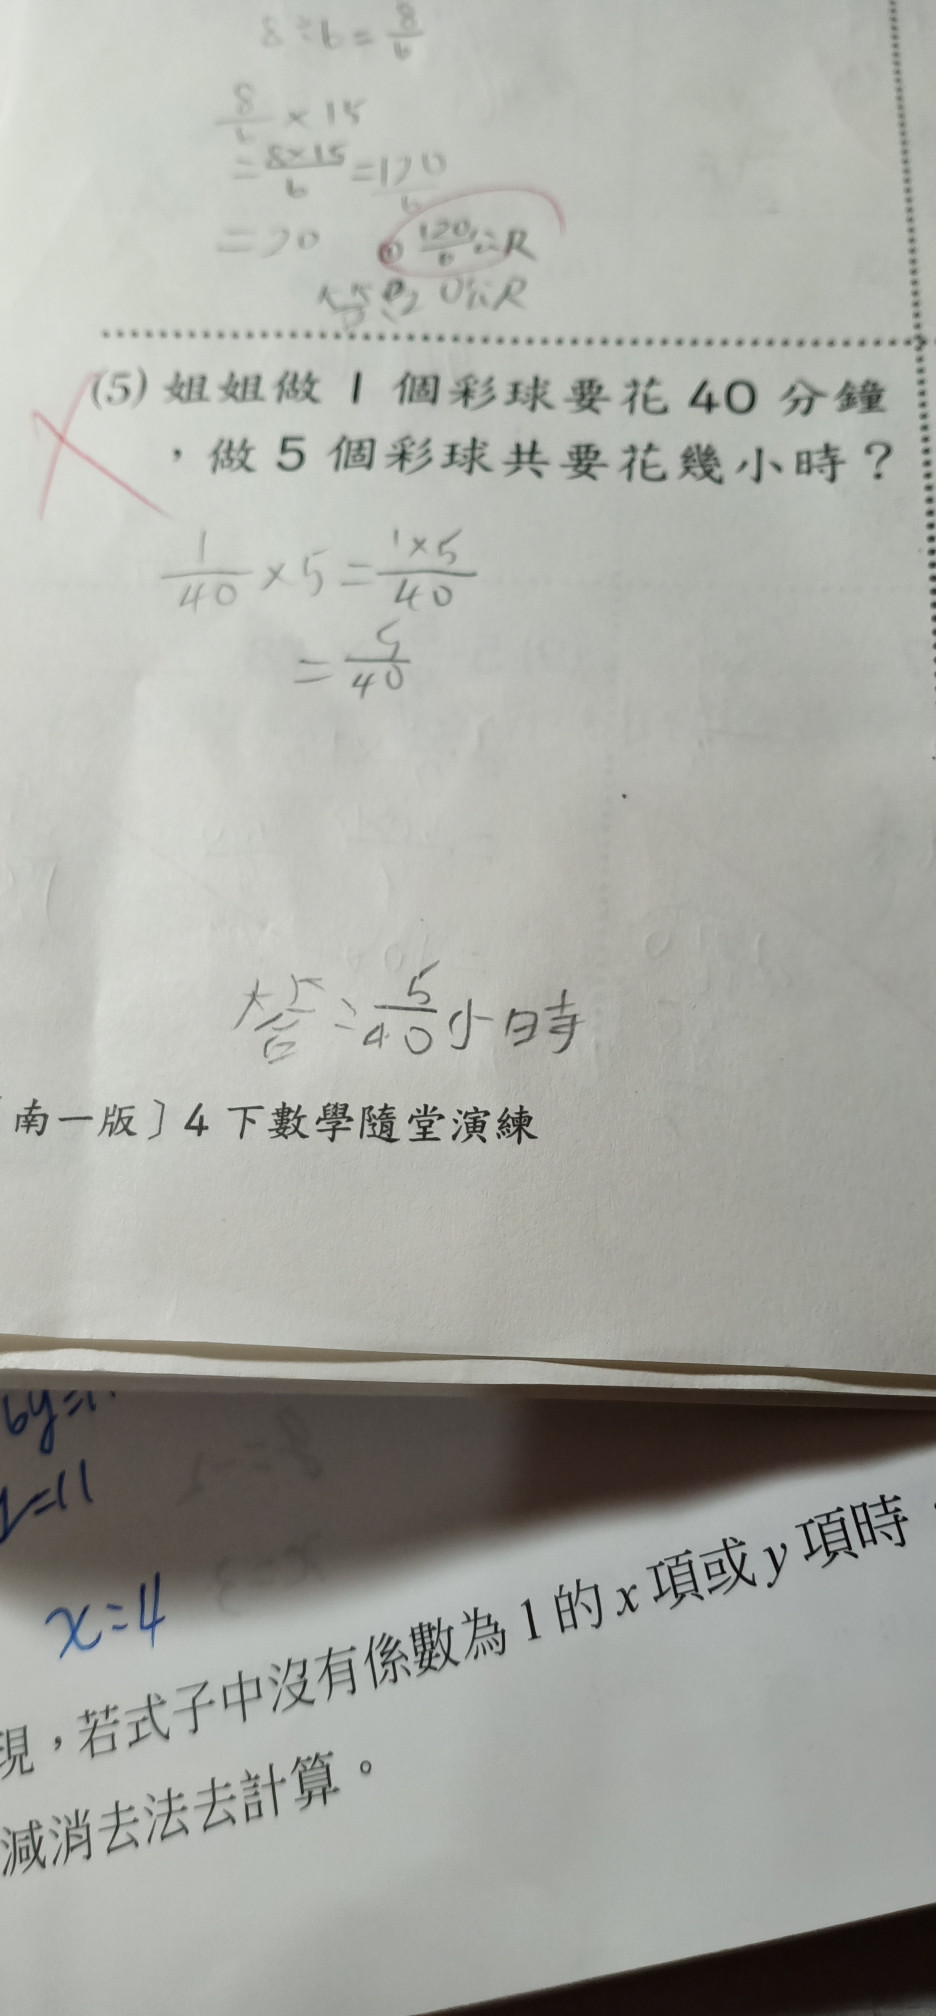 8÷6=8/6
8/6×15
=8×15/6=120/6
=20 120/6公尺
答:20公尺
(5)姐姐做1個彩球要花40分鐘
,做5個彩球共要花幾小時?
1/40×5=1×5/40
=5/40
答:5/40小時
南一版〕4下數學隨堂演練
6y=1
=11
x=4
現,若式子中沒有係數為1的x項或y項時
減消去法去計算。